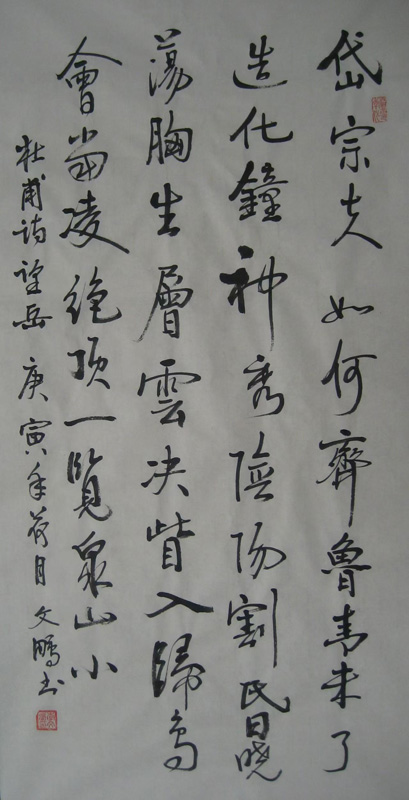 岱宗夫如何齊魯青未了
造化鐘神秀陰陽割昏曉
蕩胸生層雲决眥入歸鳥
會當凌絕頂一覽衆山小
杜甫詩望岳 庚寅年荷月 文鵬书